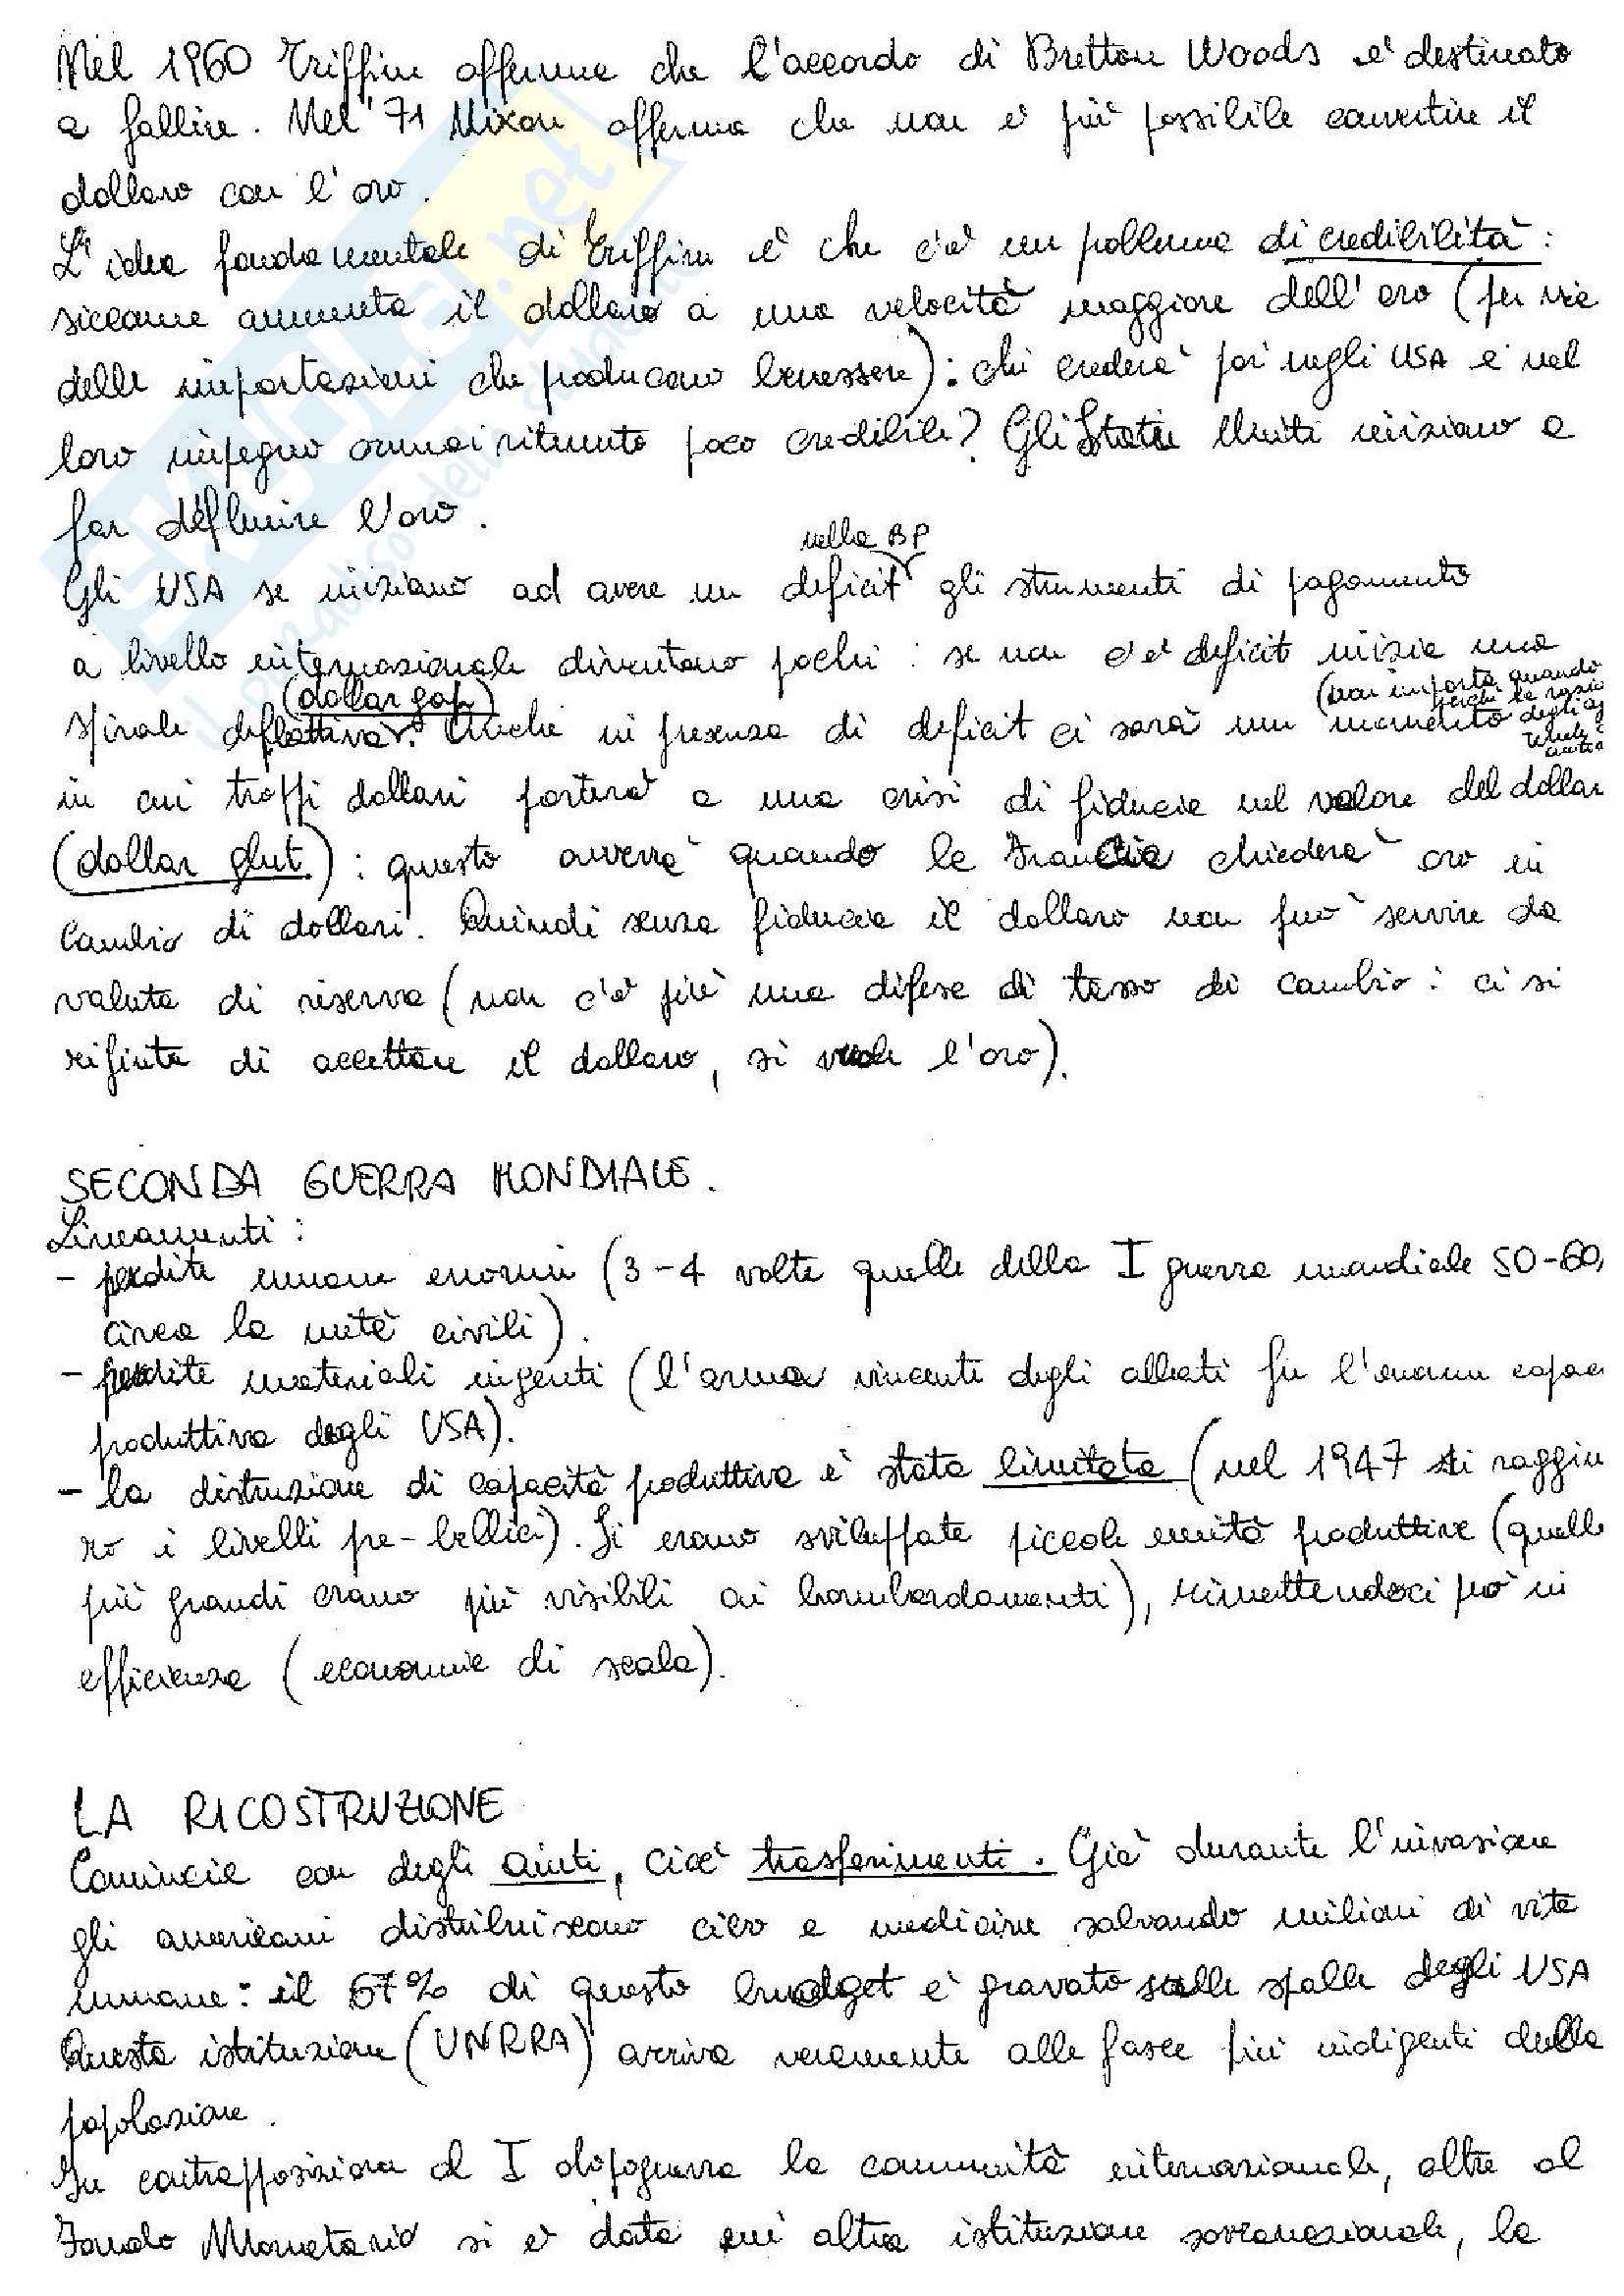 Nel 1960 Triffin afferma che l'accordo di Bretton Woods e' destinato
a fallire. Nel '71 Nixon afferma che non e' più possibile convertire il
dollaro con l'oro.
L'idea fondamentale di Triffin e' che c'e' un problema di credibilità:
siccome aumenta il dollaro a una velocità maggiore dell'oro (per via
delle importazioni che producono benessere): chi crederà poi negli USA e nel
loro impegno ormai ritenuto poco credibile? Gli Stati Uniti iniziano a
far defluire l'oro.
nella BP
Gli USA se iniziano ad avere un deficit gli strumenti di pagamento
a livello internazionale diventano pochi: se non c'e' deficit inizia una
(dollar gap) (non importa quando
spirale deflattiva. Anche in presenza di deficit ci sarà un momento
in cui troppi dollari porterà a una crisi di fiducia nel valore del dollar
(dollar glut): questo avverrà quando la Francia chiederà oro in
cambio di dollari. Quindi senza fiducia il dollaro non può servire da
valuta di riserva (non c'e' più una difesa di tasso di cambio: ci si
rifiuta di accettare il dollaro, si vuole l'oro).
SECONDA GUERRA MONDIALE.
Lineamenti:
- perdite umane enormi (3-4 volte quelle della I guerra mondiale 50-60,
circa la metà civili).
- perdite materiali ingenti (l'arma vincente degli alleati fu l'enorme capac
produttiva degli USA).
- la distruzione di capacità produttiva è stata limitata (nel 1947 si raggiun
ro i livelli pre-bellici). Si erano sviluppate piccole unità produttive (quelle
più grandi erano più visibili ai bombardamenti), rimettendoci però in
efficienza (economie di scala).
LA RICOSTRUZIONE
Comincia con degli aiuti, cioè trasferimenti. Già durante l'invasione
gli americani distribuiscono cibo e medicine salvando milioni di vite
umane: il 67% di questo budget e' gravato sulle spalle degli USA
Questa istituzione (UNRRA) arriva veramente alle fasce più indigenti della
popolazione.
In contrapposizione al I dopoguerra la comunità internazionale, oltre al
Fondo Monetario si e' data un'altra istituzione sovranazionale, la